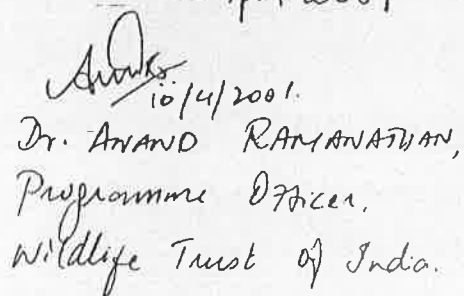 2001
10/4/2001.
Dr. ANAND RAMANATHAN,
Programme Officer,
Wildlife Trust of India.